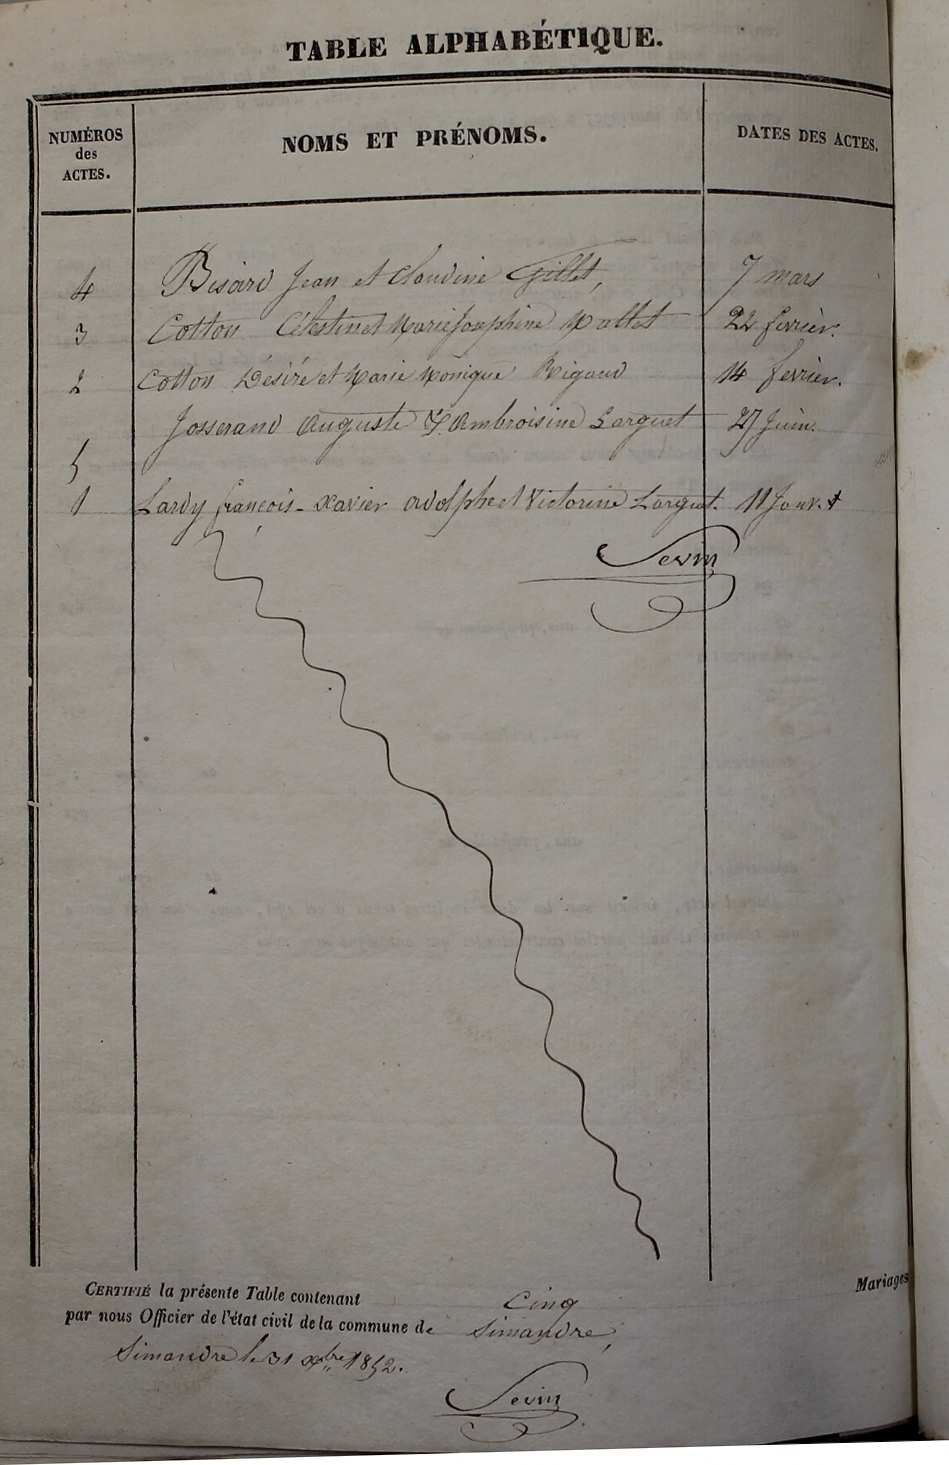 TABLE ALPHABÉTIQUE.
NUMÉROS des ACTES. NOMS ET PRÉNOMS. DATES DES ACTES.
4 Bisard Jean et Claudine Gillet, 7 mars
3 Cotton Célestin et Marie Josephine Mallet 22 fevrièr.
2 Cotton Désiré et Marie Monique Rigaud 14 fevrièr.
5 Josserand Auguste & Ambroisine Larguet 27 Juin.
1 Lardy françois-Xavier Adolphe et Victorine Larguet. 11 Janv.
Sevin
CERTIFIÉ la présente Table contenant Cinq Mariages
par nous Officier de l'état civil de la commune de Simandre,
Simandre le 31 Xbre 1852.
Sevin